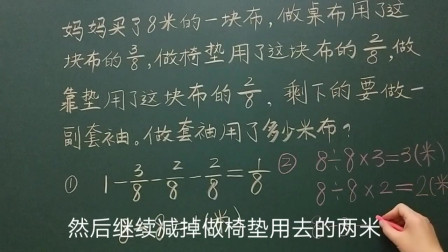 妈妈买了8米的一块布,做桌布用了这
块布的3/8,做椅垫用了这块布的2/8,做
靠垫用了这块布的2/8,剩下的要做一
副套袖。做套袖用了多少米布?
① 1-3/8-2/8-2/8=1/8
② 8÷8×3=3(米)
8÷8×2=2(米
然后继续减掉做椅垫用去的两米